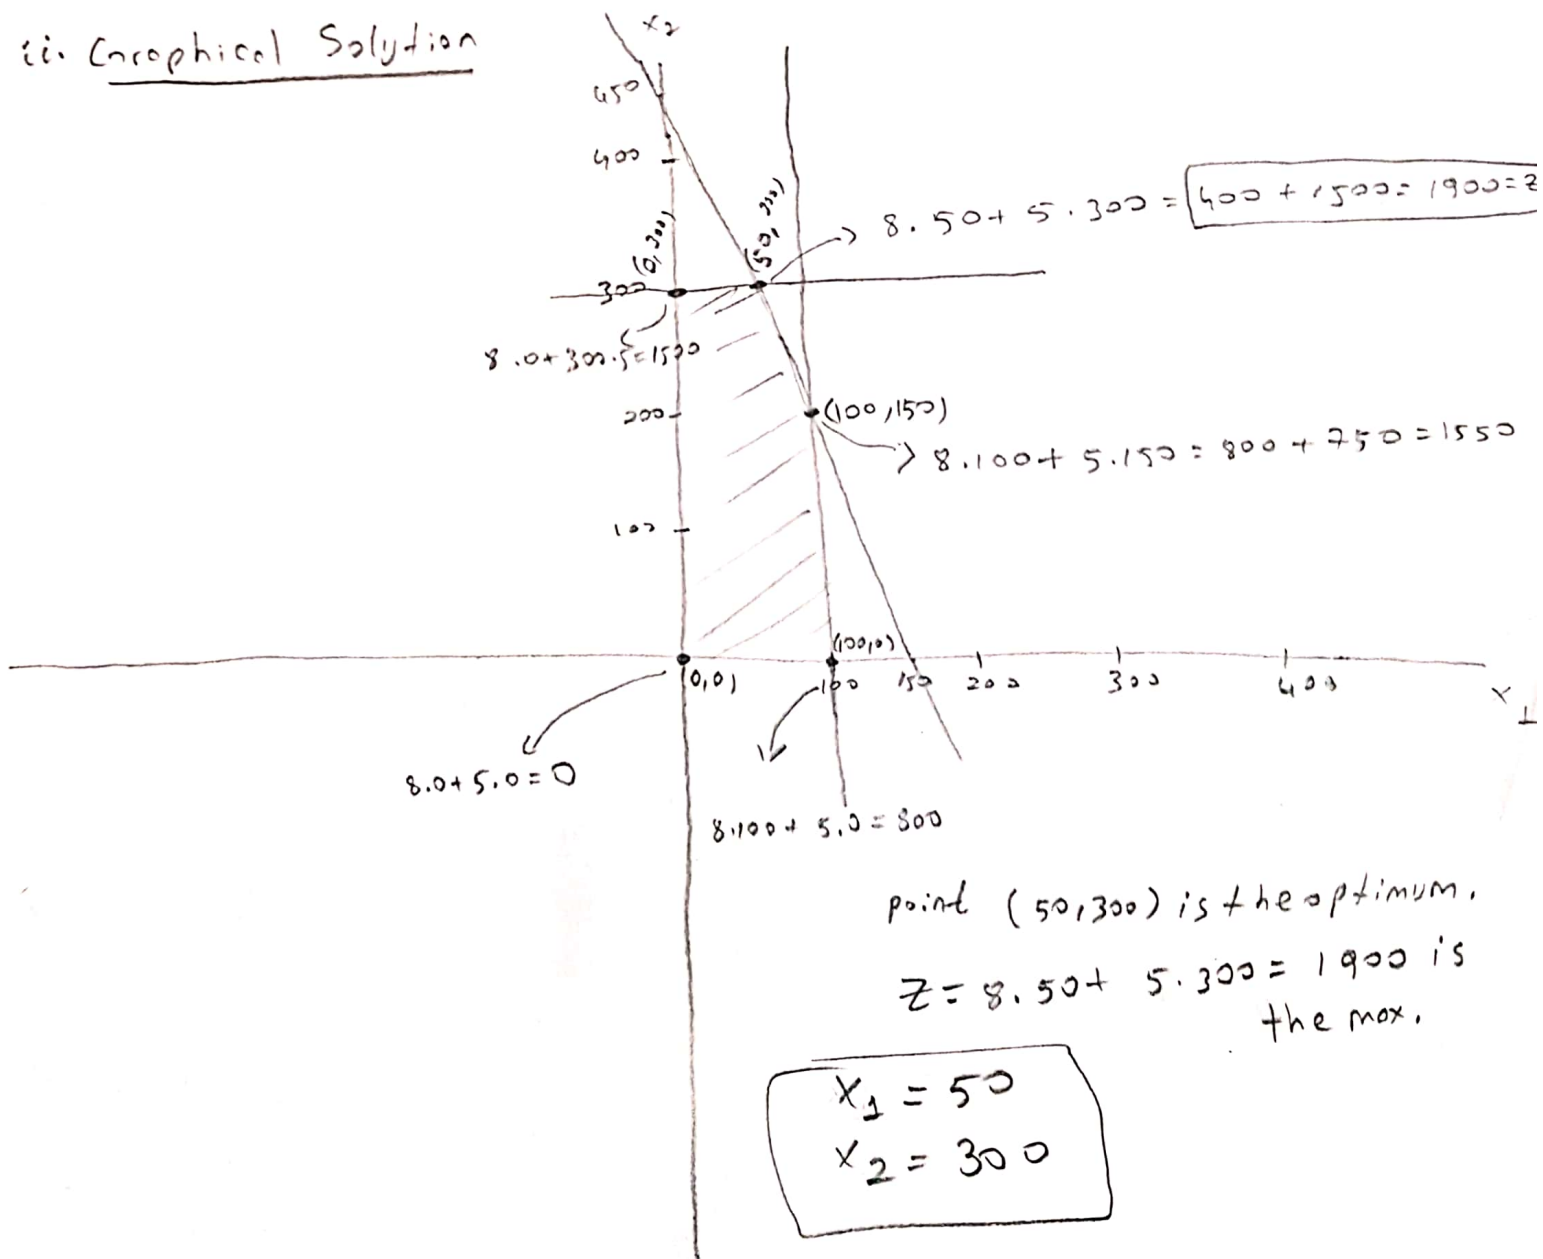 ii. Graphical Solution
x₂
450
400
(0,300)
(50,300)
8.50+ 5.300 = 400 + 1500= 1900=Z
300
8.0+300.5=1500
200
(100,150)
8.100+ 5.150 = 800 + 750 = 1550
100
(100,0)
(0,0)
100
150
200
300
400
x₁
8.0+5.0=0
8.100+ 5.0=800
point (50,300) is the optimum.
Z=8.50+ 5.300= 1900 is
the max.
x₁ = 50
x₂ = 300